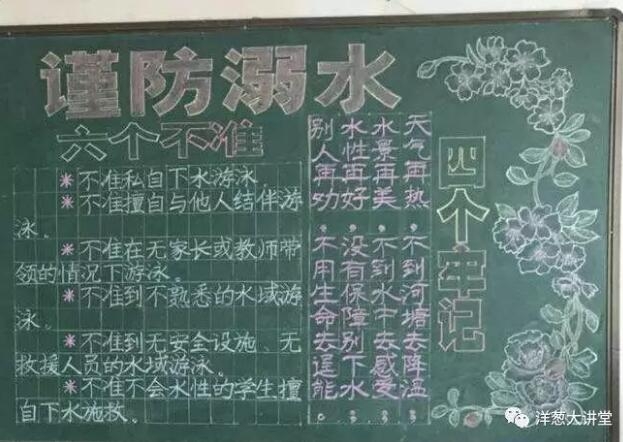 谨防溺水
六个不准
*不准私自下水游泳
*不准擅自与他人结伴游
泳。
*不准在无家长或教师带
领的情况下游泳。
*不准到不熟悉的水域游
泳。
*不准到无安全设施、无
救援人员的水域游泳。
*不准不会水性的学生擅
自下水施救。
四个牢记
天气再热,不到河塘去降温。
水景再美,不到水中去感受。
水性再好,没有保障别下水。
别人再劝,不用生命去逞能。
洋葱大讲堂